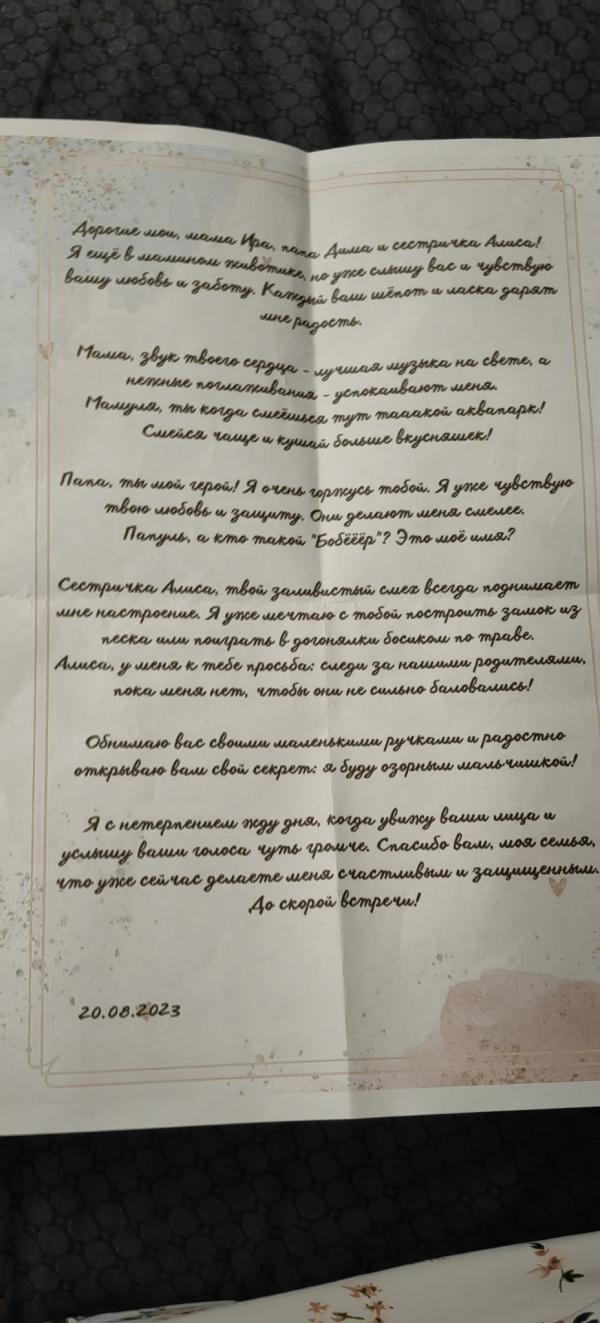 Дорогие мои, мама Ира, папа Дима и сестричка Алиса!
Я ещё в мамином животике, но уже слышу вас и чувствую
вашу любовь и заботу. Каждый ваш шёпот и ласка дарят
мне радость.
Мама, звук твоего сердца - лучшая музыка на свете, а
нежные поглаживания - успокаивают меня.
Мамуля, ты когда смеёшься тут тааакой аквапарк!
Смейся чаще и кушай больше вкусняшек!
Папа, ты мой герой! Я очень горжусь тобой. Я уже чувствую
твою любовь и защиту. Они делают меня смелее.
Папуль, а кто такой "Бобёёёр"? Это моё имя?
Сестричка Алиса, твой заливистый смех всегда поднимает
мне настроение. Я уже мечтаю с тобой построить замок из
песка или поиграть в догонялки босиком по траве.
Алиса, у меня к тебе просьба: следи за нашими родителями,
пока меня нет, чтобы они не сильно баловались!
Обнимаю вас своими маленькими ручками и радостно
открываю вам свой секрет: я буду озорным мальчишкой!
Я с нетерпением жду дня, когда увижу ваши лица и
услышу ваши голоса чуть громче. Спасибо вам, моя семья,
что уже сейчас делаете меня счастливым и защищенным.
До скорой встречи!
20.08.2023